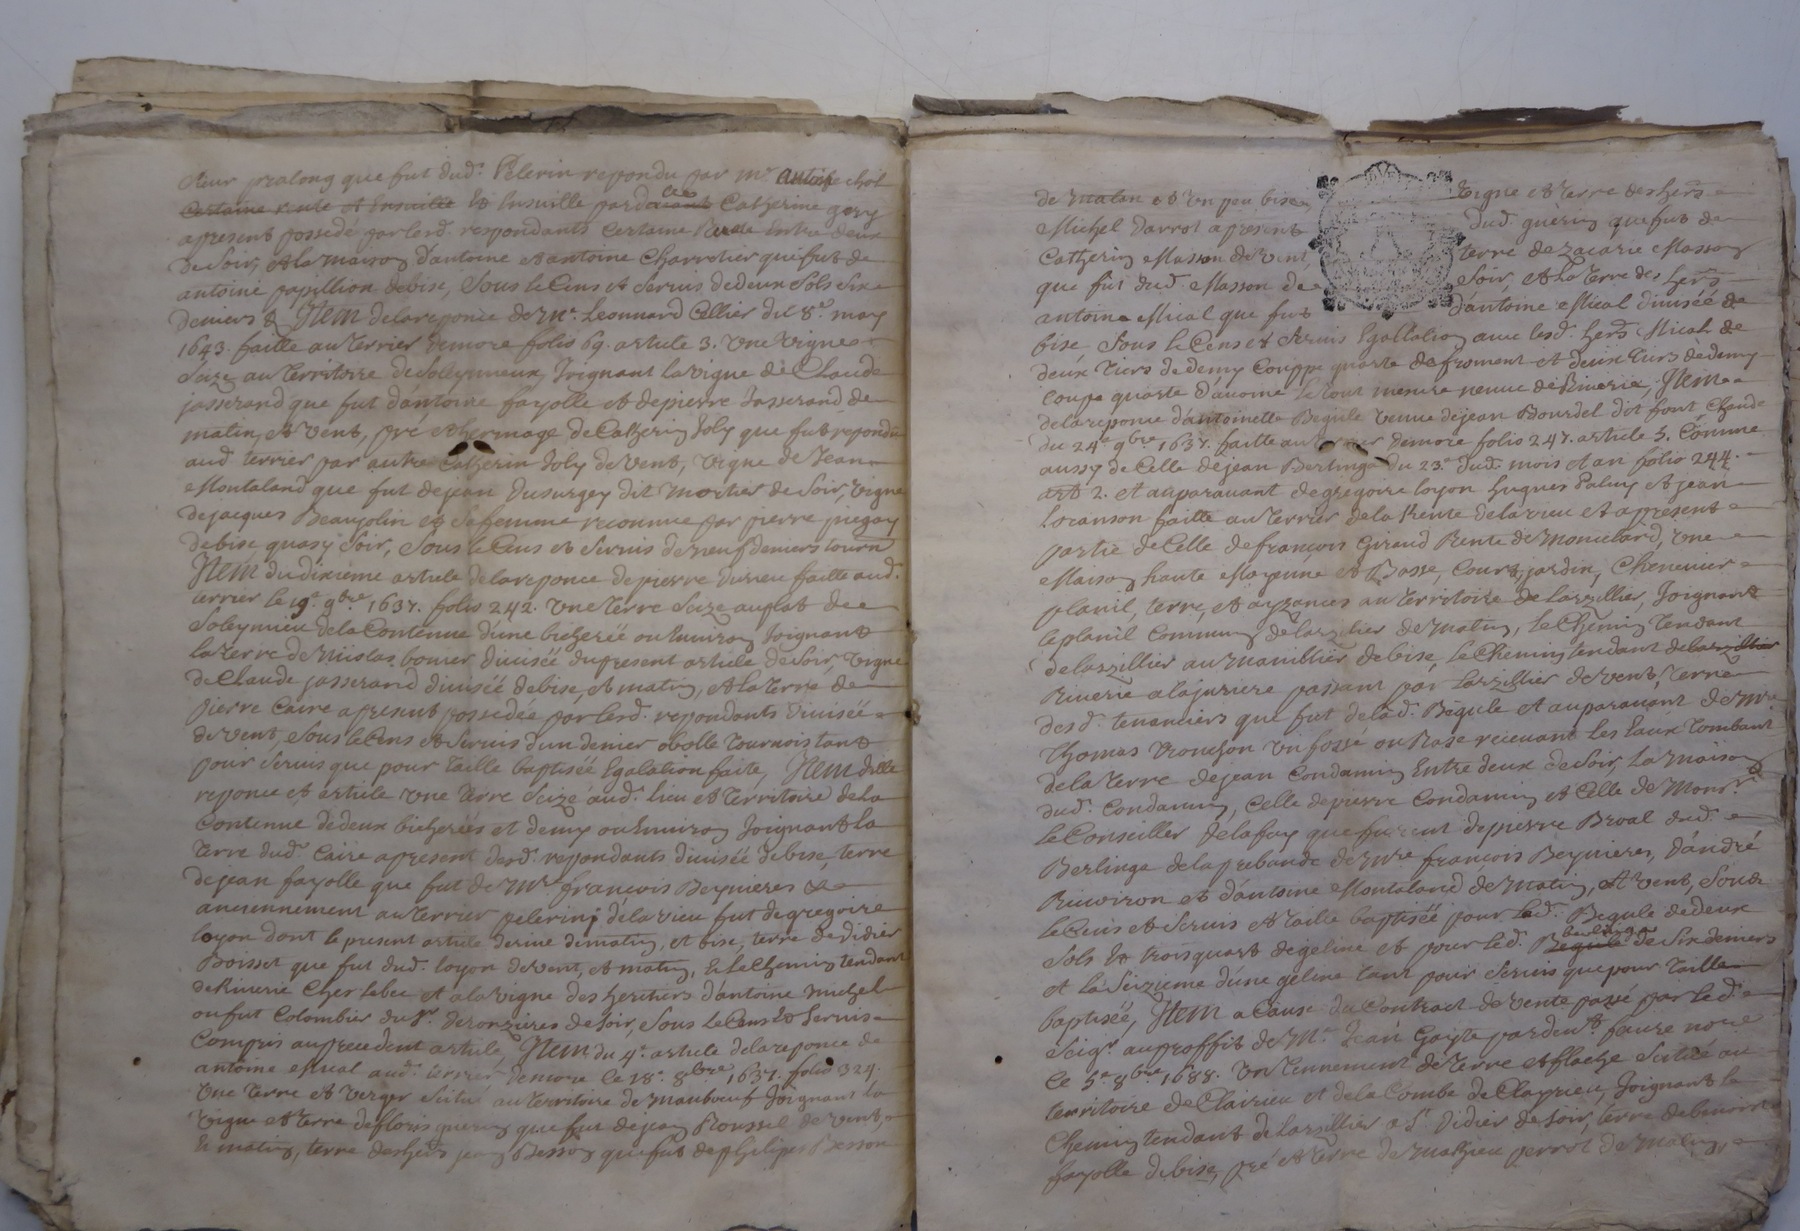 Sieur pralong que fut dud. Pelerin repondu par mr antoine chol
certaine rente et Ensuitte Et Ensuitte par Catherine gery
apresent possedé par lesd. respondants certaine Ruete Entre deux
de Soir, et la maison d'antoine et antoine Charretier que fut de
antoine papillion de bise, Sous le Cens et Servis de deux Sols Six
deniers & Item de la reponce de Mr. Leonnard Cellier du 8e may
1643. faitte au terrier Demore folio 69. article 3. Une Vigne
Seize au territoire de Soleymieux Joignant la vigne de Claude
jasserand que fut d'antoine fayolle et de pierre Jasserand de
matin, et vent, pré et hermage de Catherin Joly que fut repondu
aud. terrier par autre Catherin Joly de vent, Vigne de Jean
Montaland que fut de jean Dusurgey dit mortier de Soir, vigne
de jacques Beaujolin et Sa femme reconnue par pierre
de bise quasy Soir, Sous le Cens et Servis de neuf deniers tourn
Item du dixieme article de la reponce de pierre Durieu faitte aud.
terrier le 19e 9bre 1637. folio 242. Une terre Seize au plat de
Soleymieu de la Contenue d'une bicherée ou Environ Joignant
la terre de bonier divisée du present article de Soir, Vigne
de Claude jasserand divisée de bise, et matin, et la terre de
pierre Caire apresent possedée par lesd. repondants divisée
de vent, Sous le Cens et Servis d'un denier obolle tournois tant
pour Servis que pour taille baptisée Egalation faite, Item d'elle
reponce et article une terre Seize aud. lieu et territoire de la
Contenue de deux bicherées et demy ou Environ Joignant la
terre dud. Caire apresent desd. repondants divisée de bise, terre
de jean fayolle que fut de Mre françois Beynieres &
anciennement au terrier pelerin de la vieu fut de gregoire
loyon dont le present article derive de matin, et bise, terre de Didier
Boisset que fut dud. loyon de vent, et matin, & le Chemin tendant
de Riverie Chez lebec et a la vigne des heritiers d'antoine michel
ou fut Colombier du Sr. deronzieres de Soir, Sous le Cens Et Servis
Compris au precedent article, Item du 4e article de la reponce de
antoine Mical aud. terrier Demore le 18e 8bre 1637. folio 324.
Une terre et verger Scitué au territoire de Maubœuf Joignant la
vigne et terre de floris guerin que fut de jean Roussel de vent,
Et matin, terre des hers jean Besson que fut de philipes Besson
de matin et un peu bise, vigne et terre des hers
Michel Darrot apresent dud. guerin que fut de
Catherin Masson de vent, terre de Zacarie Masson
que fut dud. Masson de Soir, et la terre des hers
antoine Mical que fut d'antoine Mical divisée de
bise Sous le Cens et Servis Egallation avec lesd. hers Mical de
deux tiers de demy Couppe quarte de froment et deux tiers de demy
coupe quarte d'avoine le tout mesure neuve de Riverie, Item
de la reponce d'antoinette Begule veuve de jean Bourdel dit font, Chaude
du 24e 9bre 1637. faitte au terrier Demore folio 247. article 5. Comme
aussy de Celle de jean Berlinga du 23e dud. mois et an folio 244.
art 2. et auparavant de gregoire loyon hugues Paluy et jean
locanson faitte au terrier de la Rente de la vieu et apresent
partie de Celle de françois Giraud Rente de Monuelard, une
Maison haute Moyenne et Basse, Court, jardin, Chenevier
planil, terre, et ayzances au territoire de larzillier, Joignant
le planil Commun de larzilier de matin, le Chemin tendant
de larzillier au Manillier de bise, le Chemin tendant de larzillier
Riverie a lajuriere passant par larzillier de vent, terre
desd. tenanciers que fut de lad. Begule et auparavant de Mre
Thomas un fossé ou Rase recevant les Eaux tombant
de la terre de jean Condamin Entre deux de Soir, la maison
dud. Condamin, Celle de pierre Condamin et Celle de Monsr
le Conseiller de lafay que furent de pierre Broal dud.
Berlinga de la prebande de Mre françois Beynieres, d'andré
Rivoiron et d'antoine Montaland de Matin, et vent, Sous
le Cens et Servis et taille baptisée pour lad. Begule de deux
Sols Et trois quart de geline et pour led. Begule berlinga de Six deniers
et la Seizieme d'une geline tant pour Servis que pour taille
baptisée, Item a Cause du Contract de vente passé par led.
Seigr. au proffit de Mr. Jean Goyte pardevt faure nore
le 5e 8bre 1688. Un tennement de terre et flache Scitué au
territoire de Clairieu et de la Combe de Clayrieu, Joignant le
Chemin tendant de larzillier a St. Didier de Soir, terre de benoit
fayolle de bise, pré et terre de Mathieu perrot de Matin,